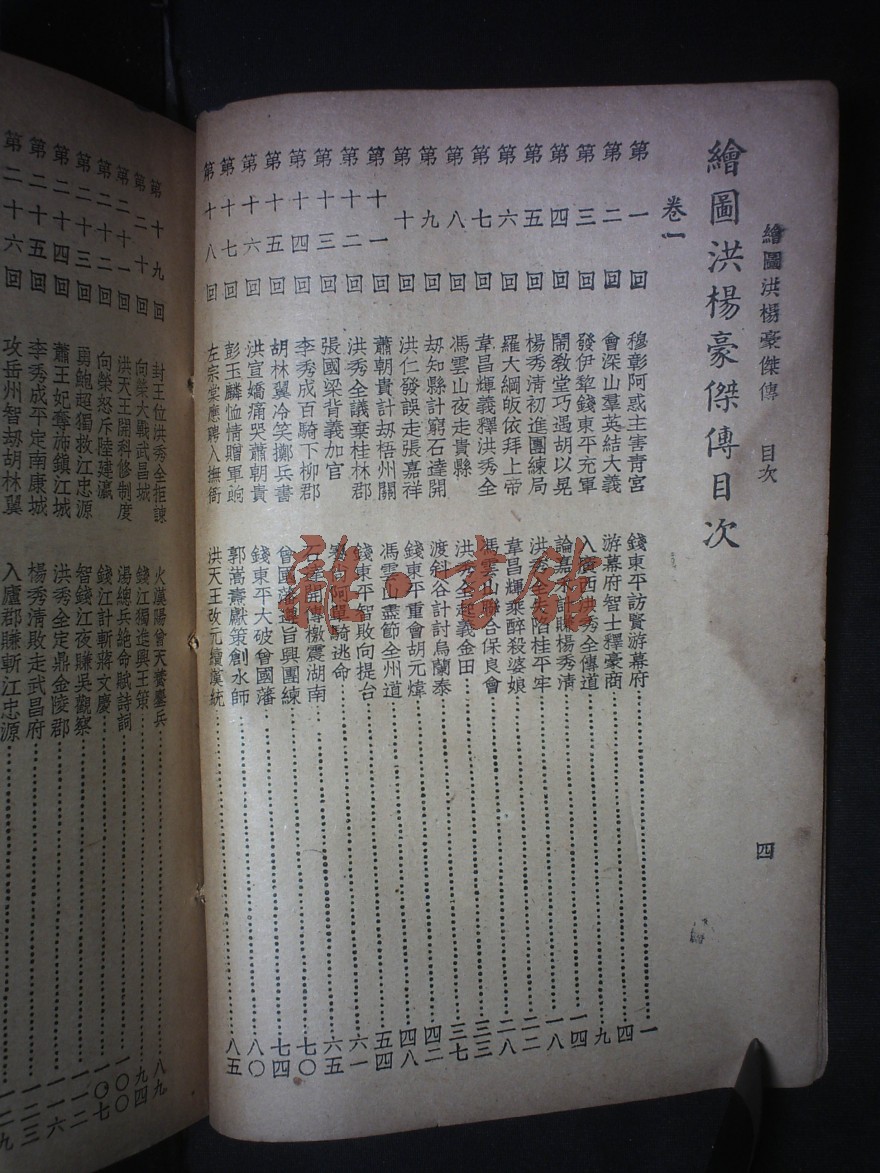 繪圖洪楊豪傑傳　目次　四
繪圖洪楊豪傑傳目次
卷一
第一回　穆彰阿惑主害青宮　錢東平訪賢游幕府……一
第二回　會深山羣英結大義　游幕府智士釋豪商……四
第三回　發伊犂錢東平充軍　入廣西洪秀全傳道……九
第四回　鬧敎堂巧遇胡以晃　論嘉禾計賺楊秀清……一四
第五回　楊秀清初進團練局　洪秀全失陷桂平牢……一八
第六回　羅大綱皈依拜上帝　韋昌輝乘醉殺婆娘……二二
第七回　韋昌輝義釋洪秀全　馮雲山聯合保良會……二八
第八回　馮雲山夜走貴縣　洪秀全起義金田……三三
第九回　刧知縣計窮石達開　渡斜谷計討烏蘭泰……三七
第十回　洪仁發誤走張嘉祥　錢東平重會胡元煒……四二
第十一回　蕭朝貴計刧梧州關　馮雲山盡節全州道……四八
第十二回　洪秀全議棄桂林郡　錢東平智敗向提台……五四
第十三回　張國梁背義加官　賽尚阿單騎逃命……六一
第十四回　李秀成百騎下柳郡　石達開傳檄震湖南……六五
第十五回　胡林翼冷笑擲兵書　曾國藩遵旨興團練……七〇
第十六回　洪宣嬌痛哭蕭朝貴　錢東平大破曾國藩……七四
第十七回　彭玉麟恤情贈軍餉　郭嵩燾獻策創水師……八〇
第十八回　左宗棠應聘入撫衙　洪天王改元續漢統……八五
第十九回　封王位洪秀全拒諫　火漢陽曾天養鏖兵……八九
第二十回　向榮大戰武昌城　錢江獨進興王策……九四
第二十一回　洪天王開科修制度　湯總兵絕命賦詩詞……一〇〇
第二十二回　向榮怒斥陸建瀛　錢江計斬蔣文慶……一〇七
第二十三回　勇鮑超獨救江忠源　智錢江夜賺吳觀察……一一二
第二十四回　蕭王妃奪旆鎮江城　洪秀全定鼎金陵郡……一一六
第二十五回　李秀成平定南康城　楊秀清敗走武昌府……一二三
第二十六回　攻岳州智刧胡林翼　入廬郡賺斬江忠源……一二九
雜·書館